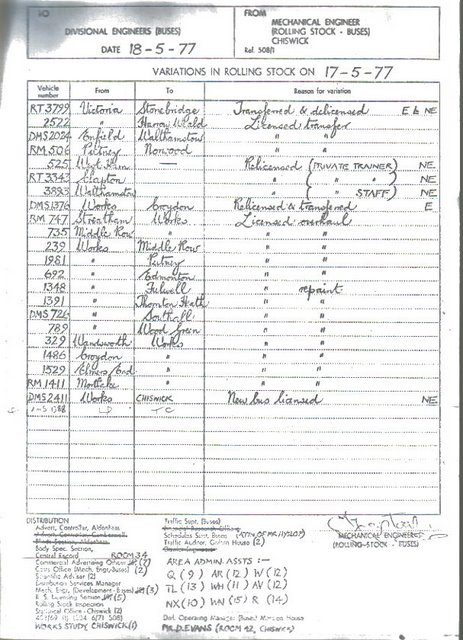 TO
DIVISIONAL ENGINEERS (BUSES)
DATE 18-5-77
FROM
MECHANICAL ENGINEER
(ROLLING STOCK - BUSES)
CHISWICK
Ref. 508/1
VARIATIONS IN ROLLING STOCK ON 17-5-77
Vehicle number From To Reason for variation
RT 3799 Victoria Stonebridge Transferred & delicensed E b NE
2522 " Harrow Weald Licensed transfer
DMS 2024 Enfield Walthamstow " "
RM 506 Putney Norwood " "
525 West Ham Relicensed (PRIVATE TRAINER) NE
RT 3343 Clapton " ( " " ) NE
3893 Walthamstow " ( " STAFF) NE
DMS 1376 Works Croydon Relicensed & transferred E
RM 747 Streatham Works Licensed overhaul
735 Middle Row " " "
239 Works Middle Row " "
1981 " Putney " "
692 " Edmonton " "
1348 " Fulwell " repaint
1391 " Thornton Heath " "
DMS 726 " Southall " "
789 " Wood Green " "
329 Wandsworth Works " "
1486 Croydon " " "
1529 Elmers End " " "
RM 1411 Mortlake " " "
DMS 2411 Works CHISWICK New bus licensed NE
DISTRIBUTION
Advert. Controller, Aldenham
Body Spec. Section,
Central Record ROOM 34
Commercial Advertising Officer (2)
Costs Office (Mech. Engr.-Buses) (2)
Scientific Adviser (2)
Distribution Services Manager
Mech. Engr. (Development-Buses) (3)
B. S. Licensing Section (5)
Rolling Stock Inspection
Statistical Office - Chiswick (2)
WORKS STUDY, CHISWICK (1)
Traffic Supt. (Buses)
Schedules Supt. Buses
Traffic Auditor, Griffith House (2)
AREA ADMIN. ASSTS :-
Q (9) AR (12) W (12)
TL (13) WH (11) AV (12)
NX (10) WN (15) R (14)
Divl. Operating Manager (Buses) Manson House
MR. D. EVANS (ROOM 42, CHISWICK)
MECHANICAL ENGINEER
(ROLLING STOCK - BUSES)